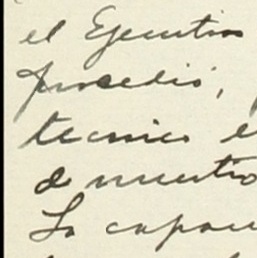 el Ejecutivo
procedió,
tecnico e
de nuestro
La capac